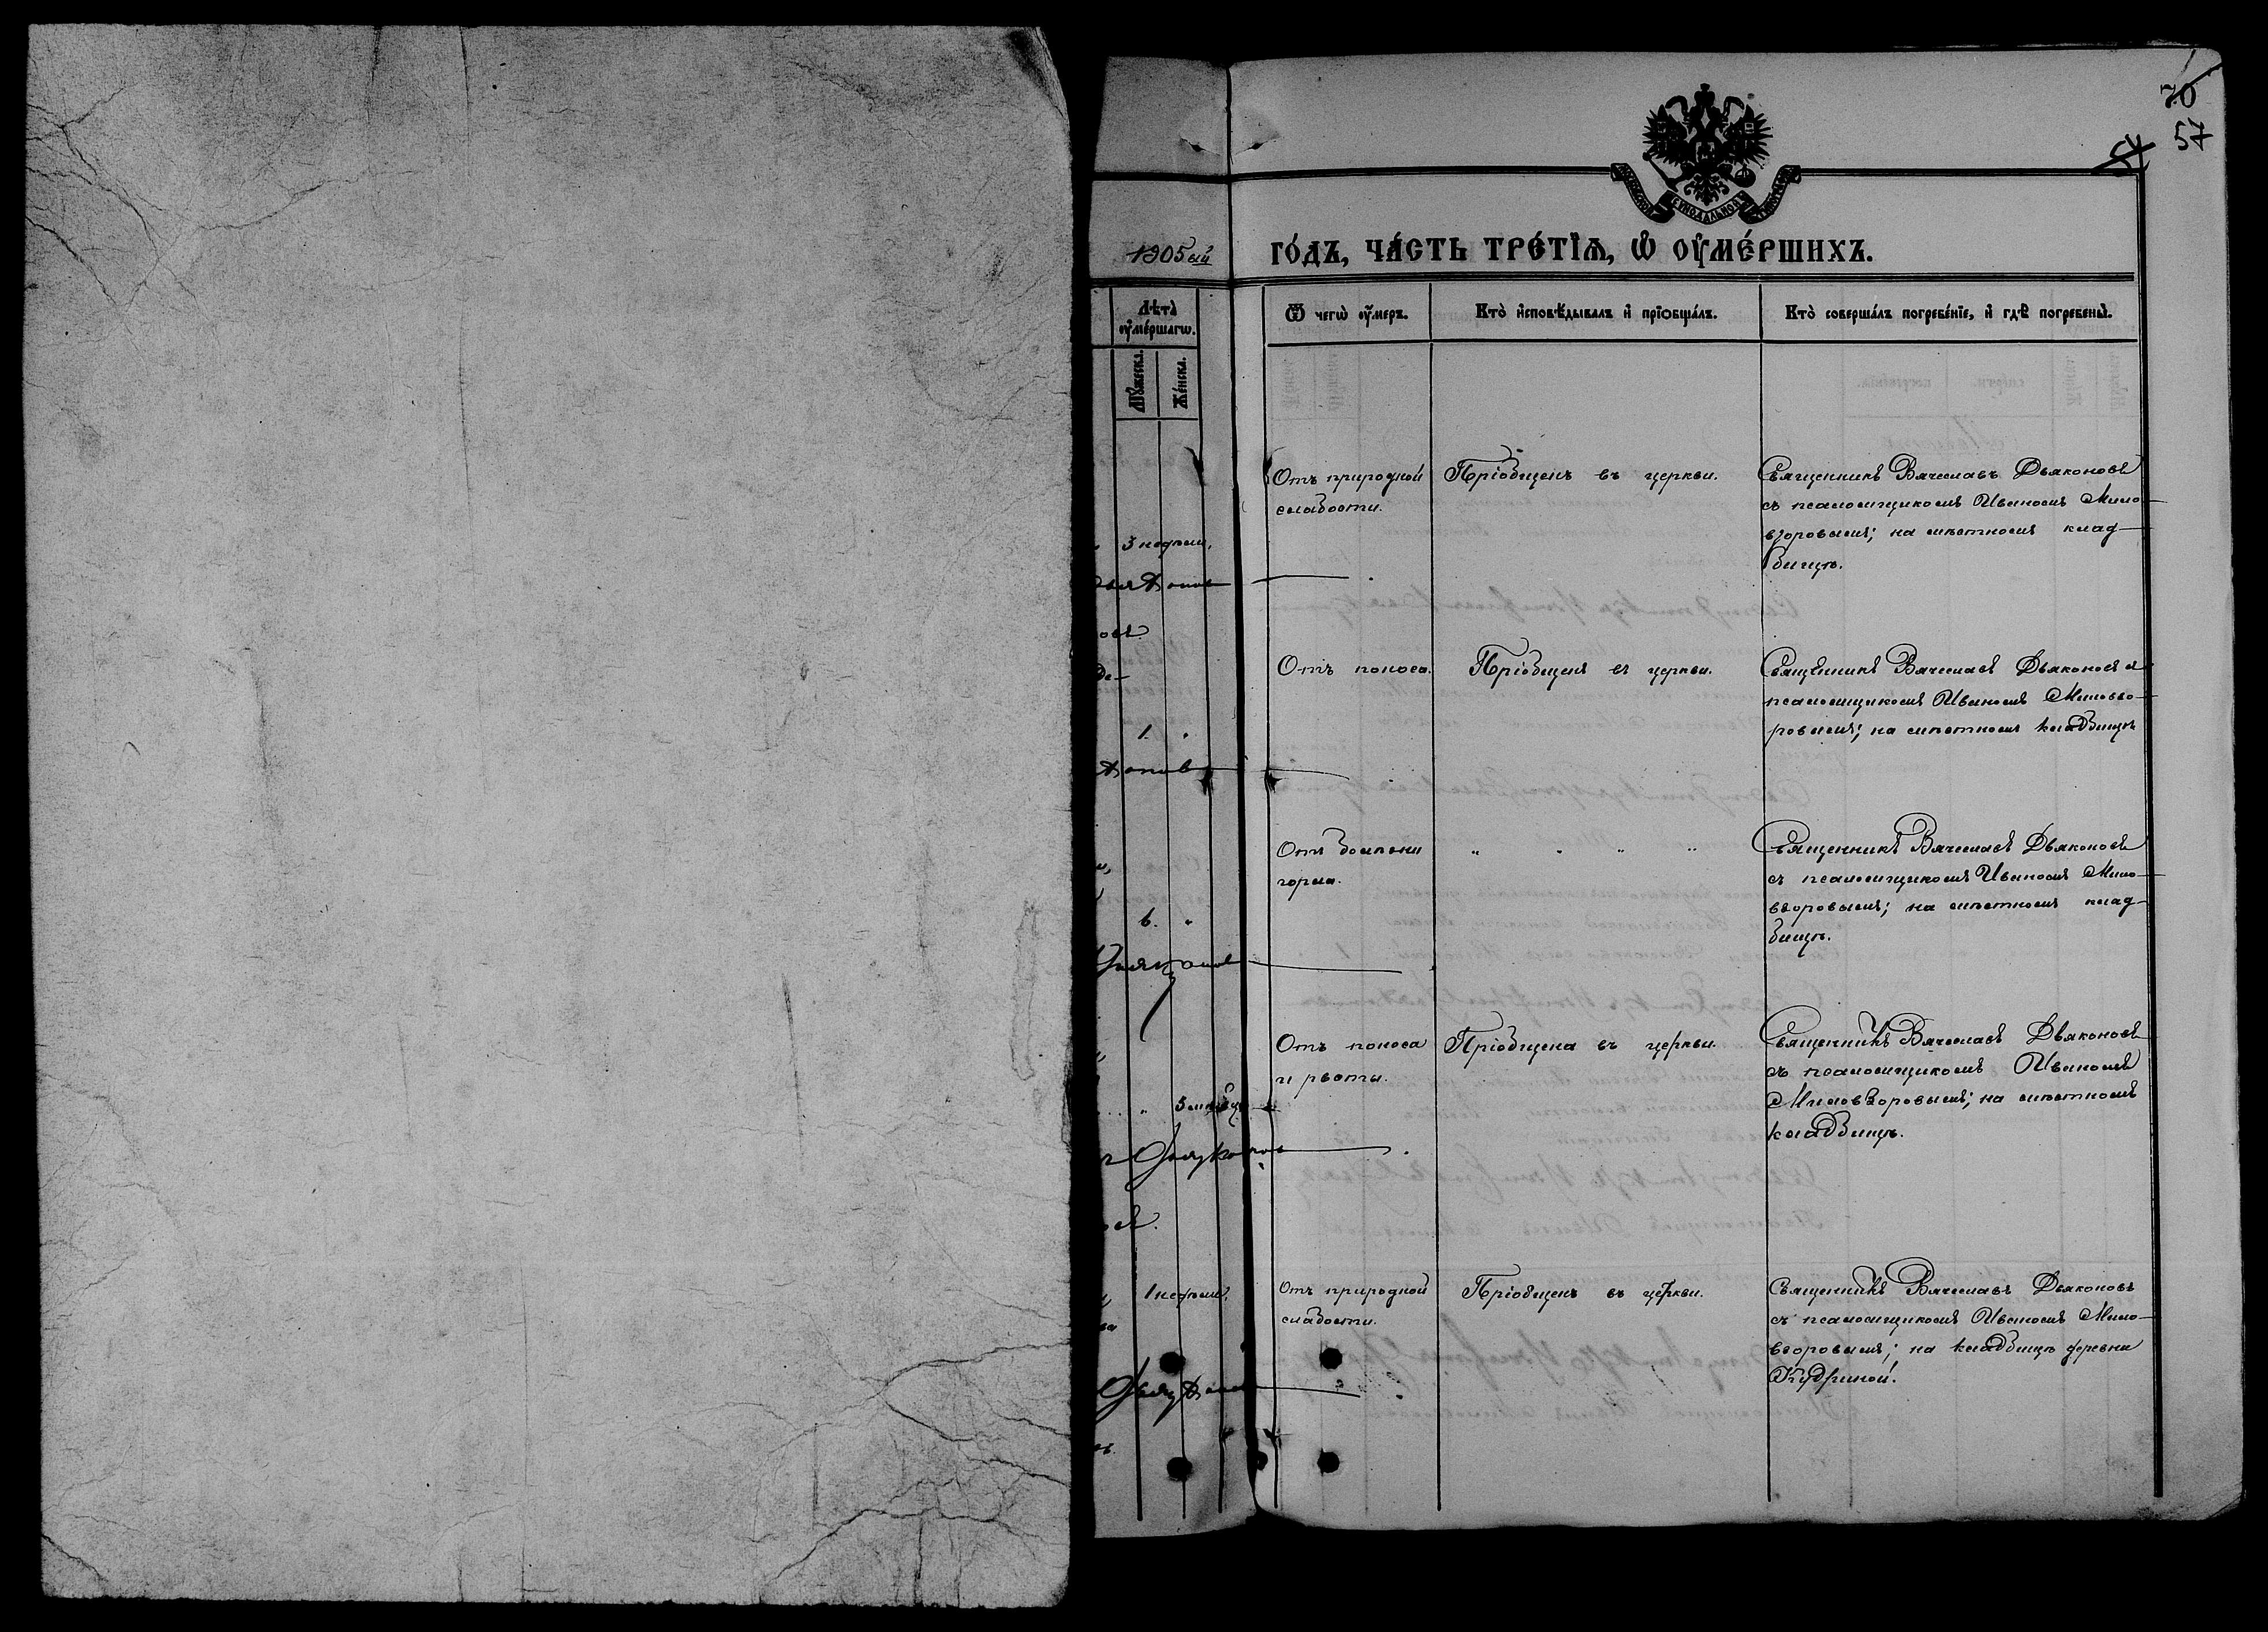 70
57
54
МОСКОВСКОЙ СѴНОДАЛЬНОЙ ТИПОГРАФІИ
1905ый
го́дъ, ча́сть тре́тїѧ, ѡ҆ ᲂу҆ме́ршихъ.
Лѣ́та ᲂу҆ме́ршагѡ.
Мꙋ́жеска.
Же́нска.
Ѿ чегѡ̀ ᲂу҆́меръ.
Кто̀ и҆сповѣ́дывалъ и҆ прїѡбща́лъ.
Кто̀ соверша́лъ погребе́нїе, и҆ гдѣ̀ погребены̀.
3 недѣли.
Отъ природной
слабости.
Пріобщенъ въ церкви.
Священникъ Вячеславъ Дьяконовъ
съ псаломщикомъ Иваномъ Мило-
взоровымъ; на мѣстномъ клад-
бищѣ.
1. "
Отъ поноса.
Пріобщенъ въ церкви.
Священникъ Вячеславъ Дьяконовъ съ
псаломщикомъ Иваномъ Миловзо-
ровымъ; на мѣстномъ кладбищѣ
6. "
Отъ болѣзни
горла.
" " " "
Священникъ Вячеславъ Дьяконовъ
съ псаломщикомъ Иваномъ Мило-
взоровымъ; на мѣстномъ клад-
бищѣ.
" 3 мѣсяц.
Отъ поноса
и рвоты.
Пріобщена въ церкви.
Священникъ Вячеславъ Дьяконовъ
съ псаломщикомъ Иваномъ
Миловзоровымъ; на мѣстномъ
кладбищѣ.
1 недѣли.
Отъ природной
слабости.
Пріобщенъ въ церкви.
Священникъ Вячеславъ Дьяконовъ
съ псаломщикомъ Иваномъ Мило-
взоровымъ; на кладбищѣ деревни
Кудриной.